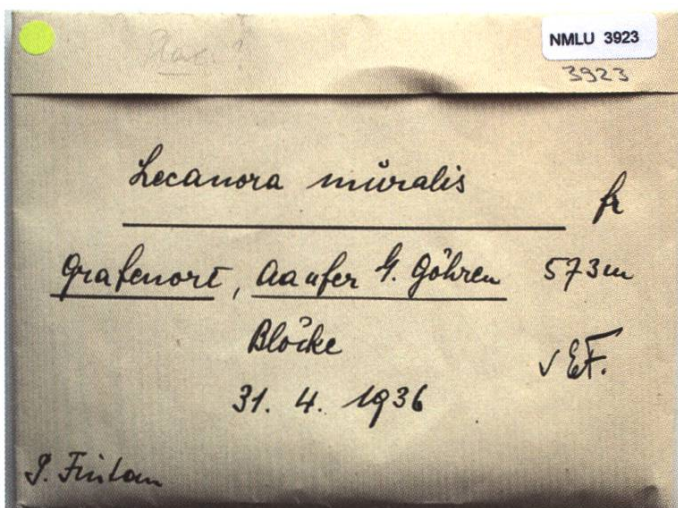 NMLU 3923
3923
Lecanora muralis
fr
Grafenort, Aaufer b. Göhren 573m
Blöcke
√ EF.
31. 4. 1936
P. Fintan